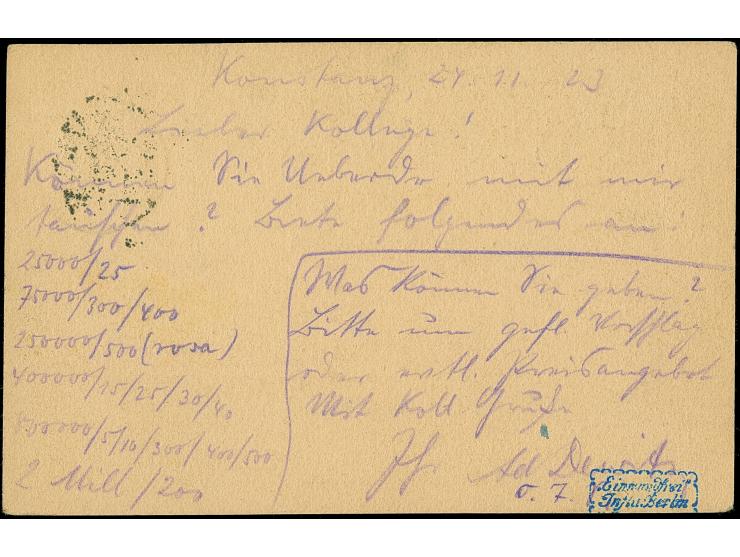 Konstanz, 24. 11. 23
Lieber Kollege!
Können Sie Ueberdr. mit mir
tauschen? Biete folgendes an:
25000/25
75000/300/400
250000/500 (rosa)
400000/15/25/30/40
800000/5/10/300/400/500
2 Mill/200
Was können Sie geben?
Bitte um gefl. Vorschlag
oder evtl. Preisangebot
Mit Koll. Gruße
Ihr Ad
Einwandfrei
Infla Berlin